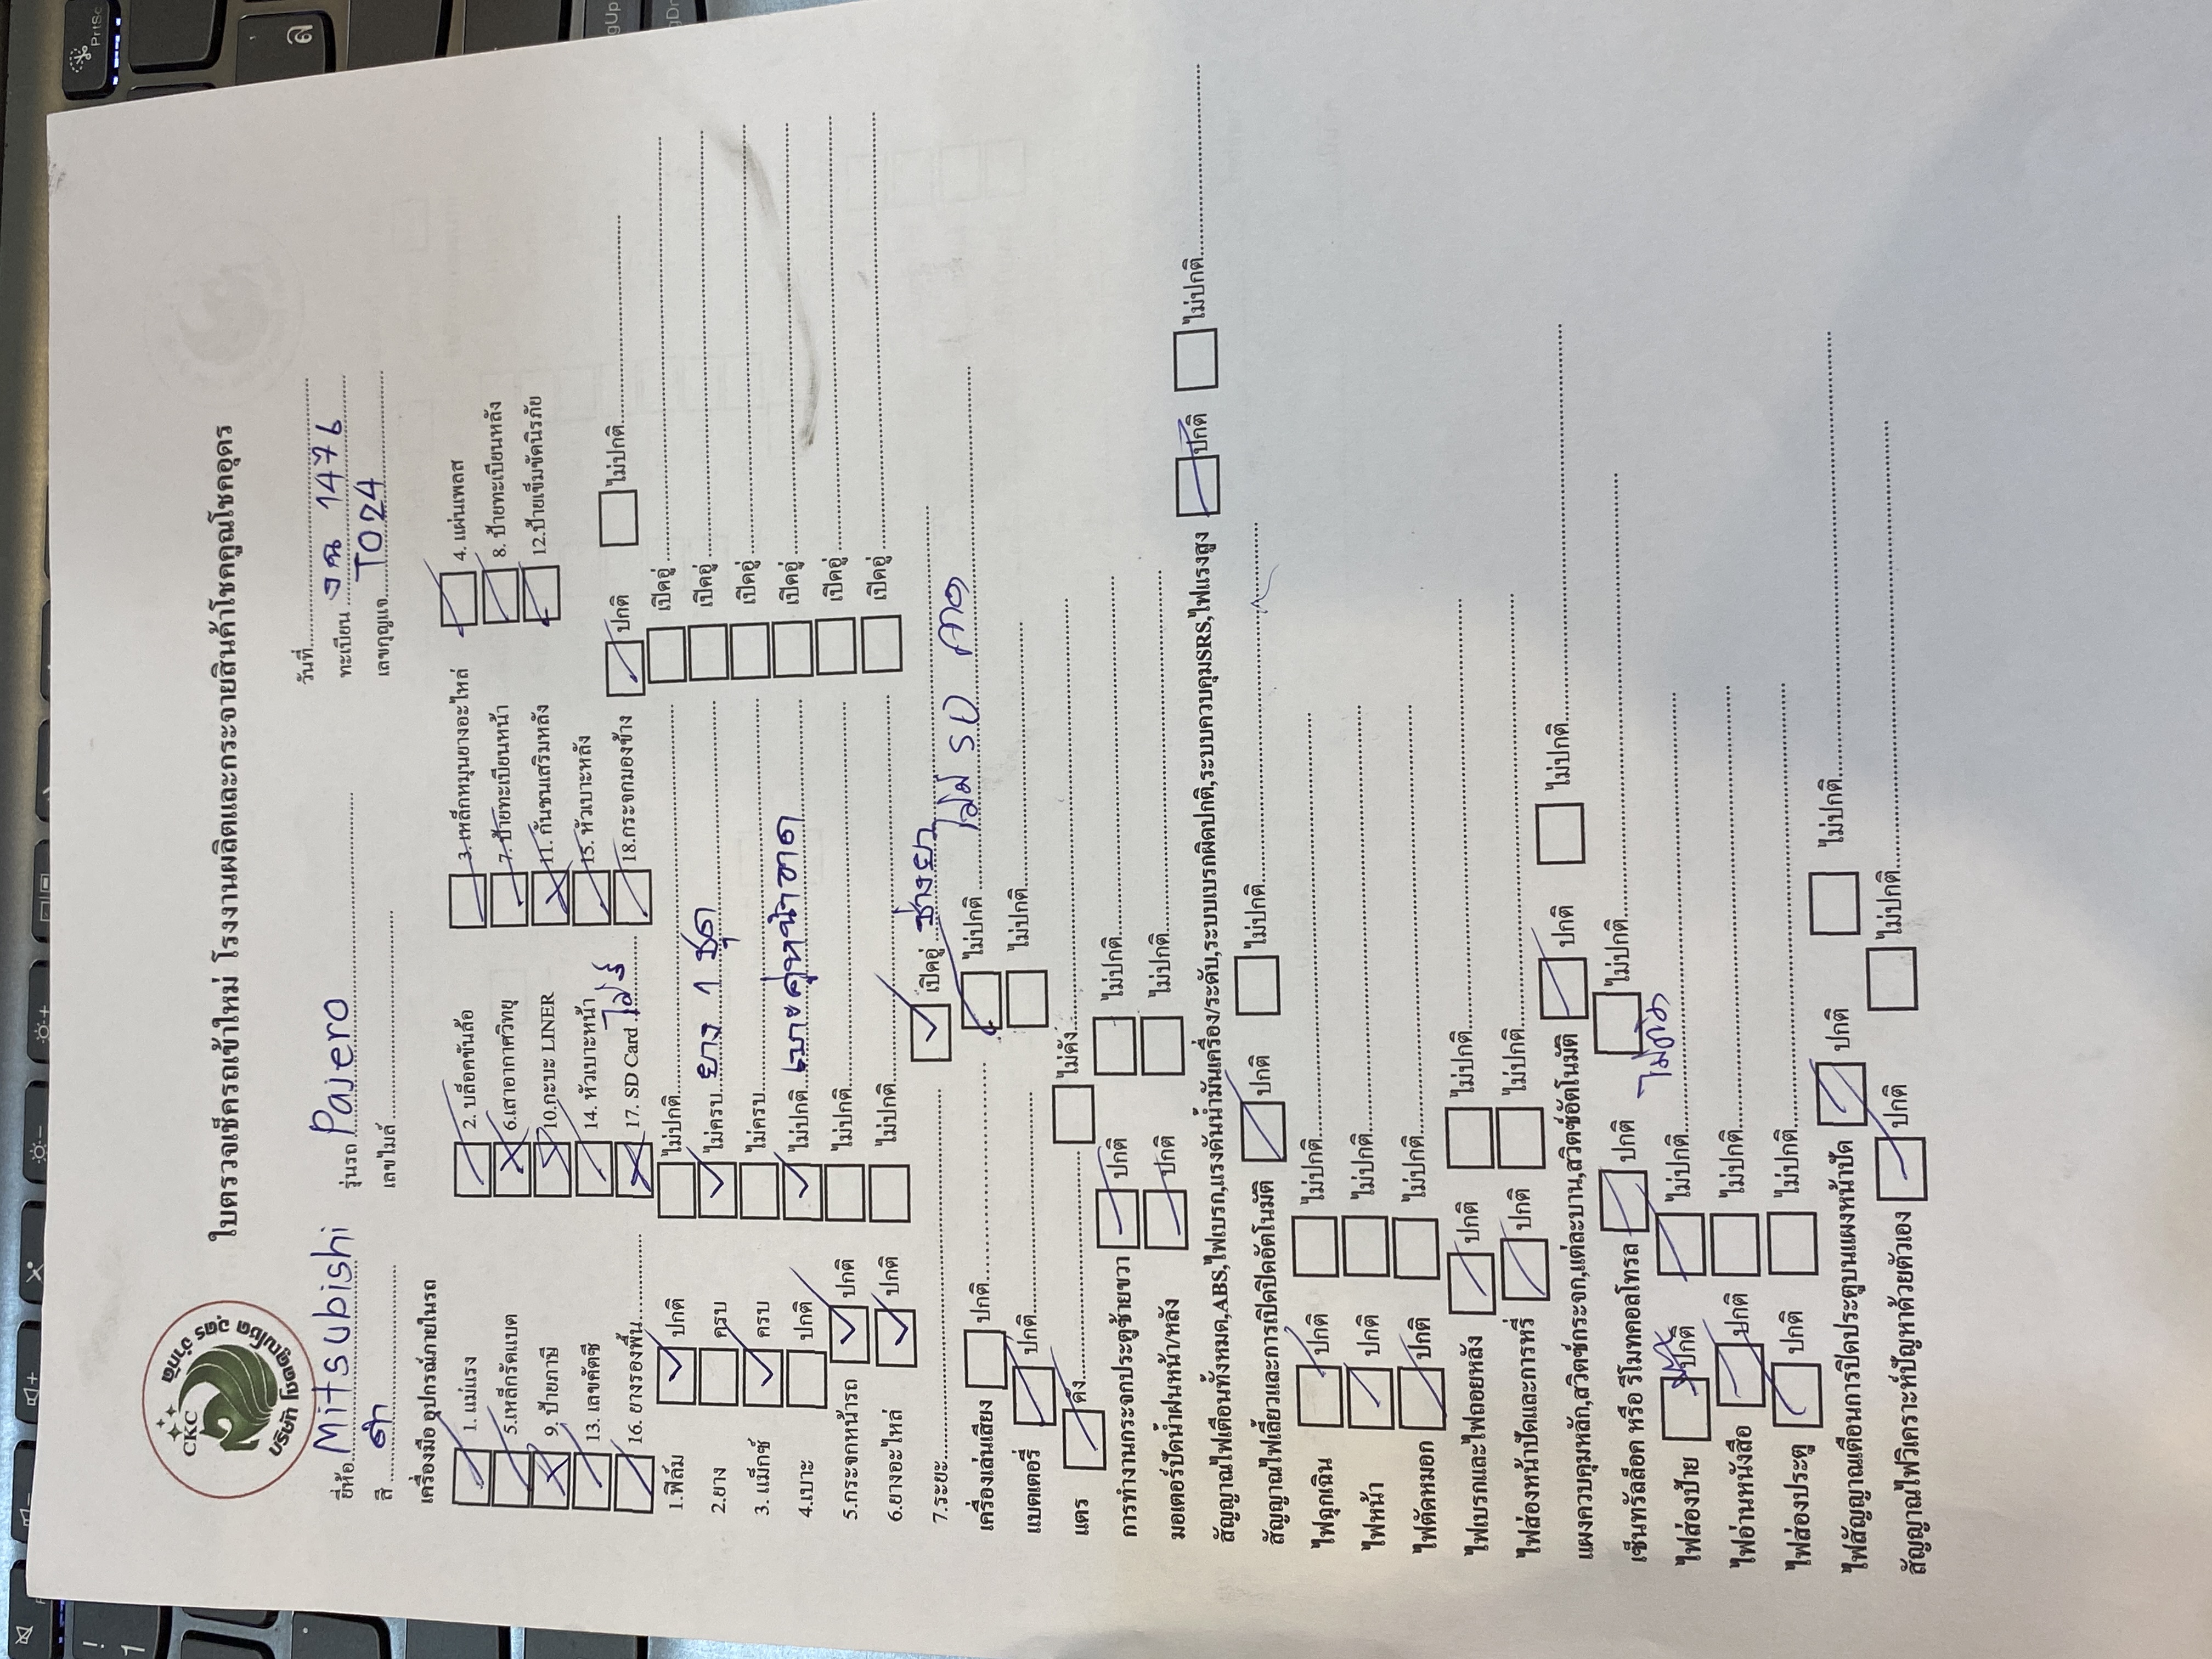 CKC
บริษัท โชคคูณโชค อุดร จำกัด
ใบตรวจเช็ครถเข้าใหม่ โรงงานผลิตและกระจายสินค้าโชคคูณโชคอุดร
วันที่
ยี่ห้อ Mitsubishi รุ่นรถ Pajero ทะเบียน งค 1476
สี ดำ เลขไมล์ เลขกุญแจ T024
เครื่องมือ อุปกรณ์ภายในรถ
1. แม่แรง 2. บล็อคขันล้อ 3.เหล็กหมุนยางอะไหล่ 4. แผ่นเพลส
5.เหล็กรัดแบต 6.เสาอากาศวิทยุ 7.ป้ายทะเบียนหน้า 8. ป้ายทะเบียนหลัง
9. ป้ายภาษี 10.กะบะ LINER 11. กันชนเสริมหลัง 12.ป้ายเข็มขัดนิรภัย
13. เลขคัตซี 14. หัวเบาะหน้า 15. หัวเบาะหลัง
16. ยางรองพื้น 17. SD Card ไม่มี 18.กระจกมองข้าง ปกติ ไม่ปกติ
1.ฟิล์ม ปกติ ไม่ปกติ เปิดอู่
2.ยาง ครบ ไม่ครบ ยาง 1 ชุด เปิดอู่
3. แม็กซ์ ครบ ไม่ครบ เปิดอู่
4.เบาะ ปกติ ไม่ปกติ เบาะคู่หน้าขาด เปิดอู่
5.กระจกหน้ารถ ปกติ ไม่ปกติ เปิดอู่
6.ยางอะไหล่ ปกติ ไม่ปกติ เปิดอู่
7.ระยะ เปิดอู่
เครื่องเล่นเสียง ปกติ ไม่ปกติ
แบตเตอรี่ ปกติ ไม่ปกติ
แตร ดัง ไม่ดัง
การทำงานกระจกประตูซ้ายขวา ปกติ ไม่ปกติ
มอเตอร์ปัดน้ำฝนหน้า/หลัง ปกติ ไม่ปกติ
สัญญาณไฟเตือนทั้งหมด,ABS,ไฟเบรก,แรงดันน้ำมันเครื่อง/ระดับ,ระบบเบรกผิดปกติ,ระบบควบคุมSRS,ไฟแรงสูง ปกติ ไม่ปกติ
สัญญาณไฟเลี้ยวและการเปิดปิดอัตโนมัติ ปกติ ไม่ปกติ
ไฟฉุกเฉิน ปกติ ไม่ปกติ
ไฟหน้า ปกติ ไม่ปกติ
ไฟตัดหมอก ปกติ ไม่ปกติ
ไฟเบรกและไฟถอยหลัง ปกติ ไม่ปกติ
ไฟส่องหน้าปัดและการหรี่ ปกติ ไม่ปกติ
แผงควบคุมหลัก,สวิตซ์กระจก,แต่ละบาน,สวิตซ์อัตโนมัติ ปกติ ไม่ปกติ
เซ็นทรัลล็อค หรือ รีโมทคอลโทรล ปกติ ไม่ปกติ
ไฟส่องป้าย ปกติ ไม่ปกติ ไม่ติด
ไฟอ่านหนังสือ ปกติ ไม่ปกติ
ไฟส่องประตู ปกติ ไม่ปกติ
ไฟสัญญาณเตือนการปิดประตูบนแผงหน้าปัด ปกติ ไม่ปกติ
สัญญาณไฟวิเคราะห์ปัญหาด้วยตัวเอง ปกติ ไม่ปกติ